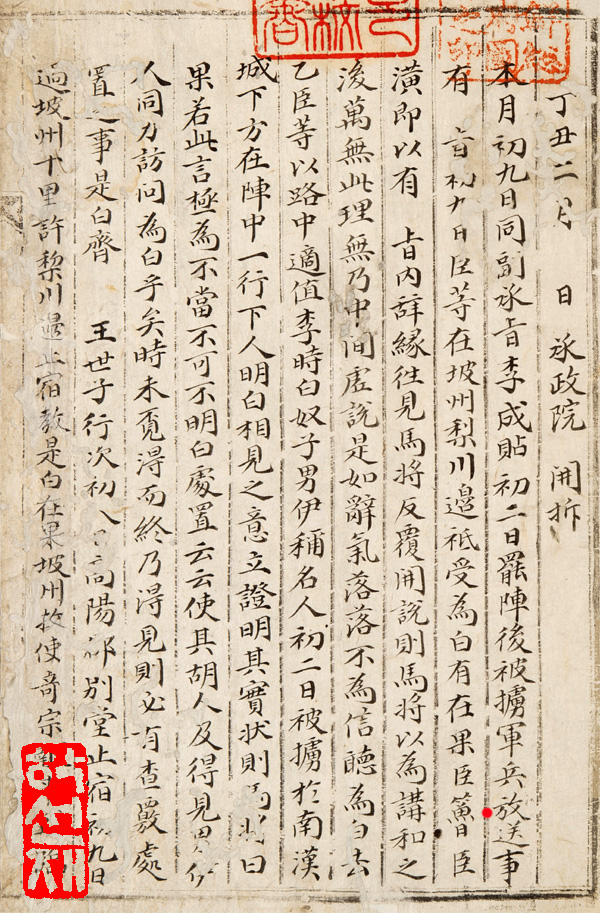 丁丑二月 日 承政院 開拆
本月初九日同副承旨李成貼初二日罷陣後被擄軍兵放送事
有 旨初九日臣等在坡州梨川邊祗受為白有在果臣䈞臣
潢即以有 旨內辭緣徃見馬將反覆開說則馬將以為講和之
後萬無此理無乃中間虛說是如辭氣落落不為信聽為白去
乙臣等以路中適值李時白奴子男伊稱名人初二日被擄於南漢
城下方在陣中一行下人明白相見之意立證明其實狀則馬將曰
果若此言極為不當不可不明白處置云云使其胡人及得見男伊
人同力訪問為白乎矣時未覓得而終乃得見則必有查覈處
置之事是白齊 王世子行次初八日高陽郡別堂止宿初九日
過坡州十里許梨川邊止宿教是白在果坡州牧使奇宗
허선재